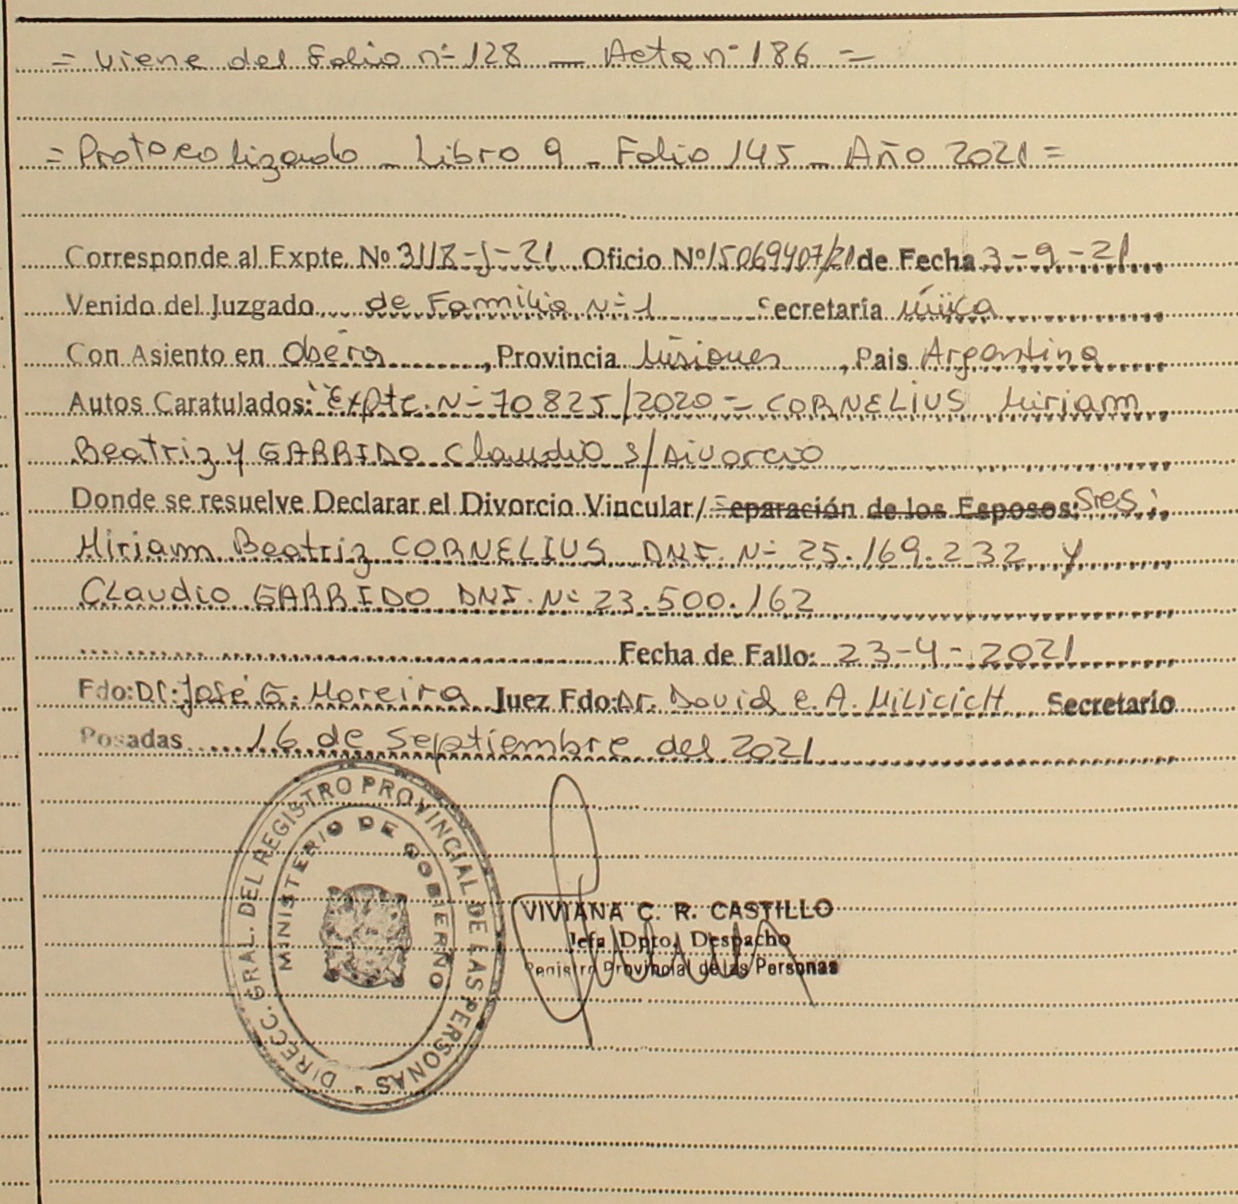 = Viene del Folio nº 128 — Acta nº 186 =
= Protocolizado - Libro 9 - Folio 145 - Año 2021 =
Corresponde al Expte. Nº 3118-J-21 Oficio Nº 15069407/21 de Fecha 3-9-21
Venido del Juzgado de Familia Nº 1 Secretaría única
Con Asiento en Oberá, Provincia Misiones, Pais Argentina
Autos Caratulados: "Expte. Nº 70825/2020 - CORNELIUS Miriam
Beatriz y GARRIDO Claudio s/Divorcio
Donde se resuelve Declarar el Divorcio Vincular/Separación de los Esposos: Sres:
Miriam Beatriz CORNELIUS DNI. Nº 25.169.232 y
Claudio GARRIDO DNI. Nº 23.500.162
Fecha de Fallo: 23-4-2021
Fdo: Dr. José G. Moreira Juez Fdo: Dr. David E. A. MILICICH Secretario
Posadas 16 de Septiembre del 2021
DIRECC. GRAL. DEL REGISTRO PROVINCIAL DE LAS PERSONAS -
MINISTERIO DE GOBIERNO
VIVIANA C. R. CASTILLO
Jefa Dpto. Despacho
Registro Provincial de las Personas